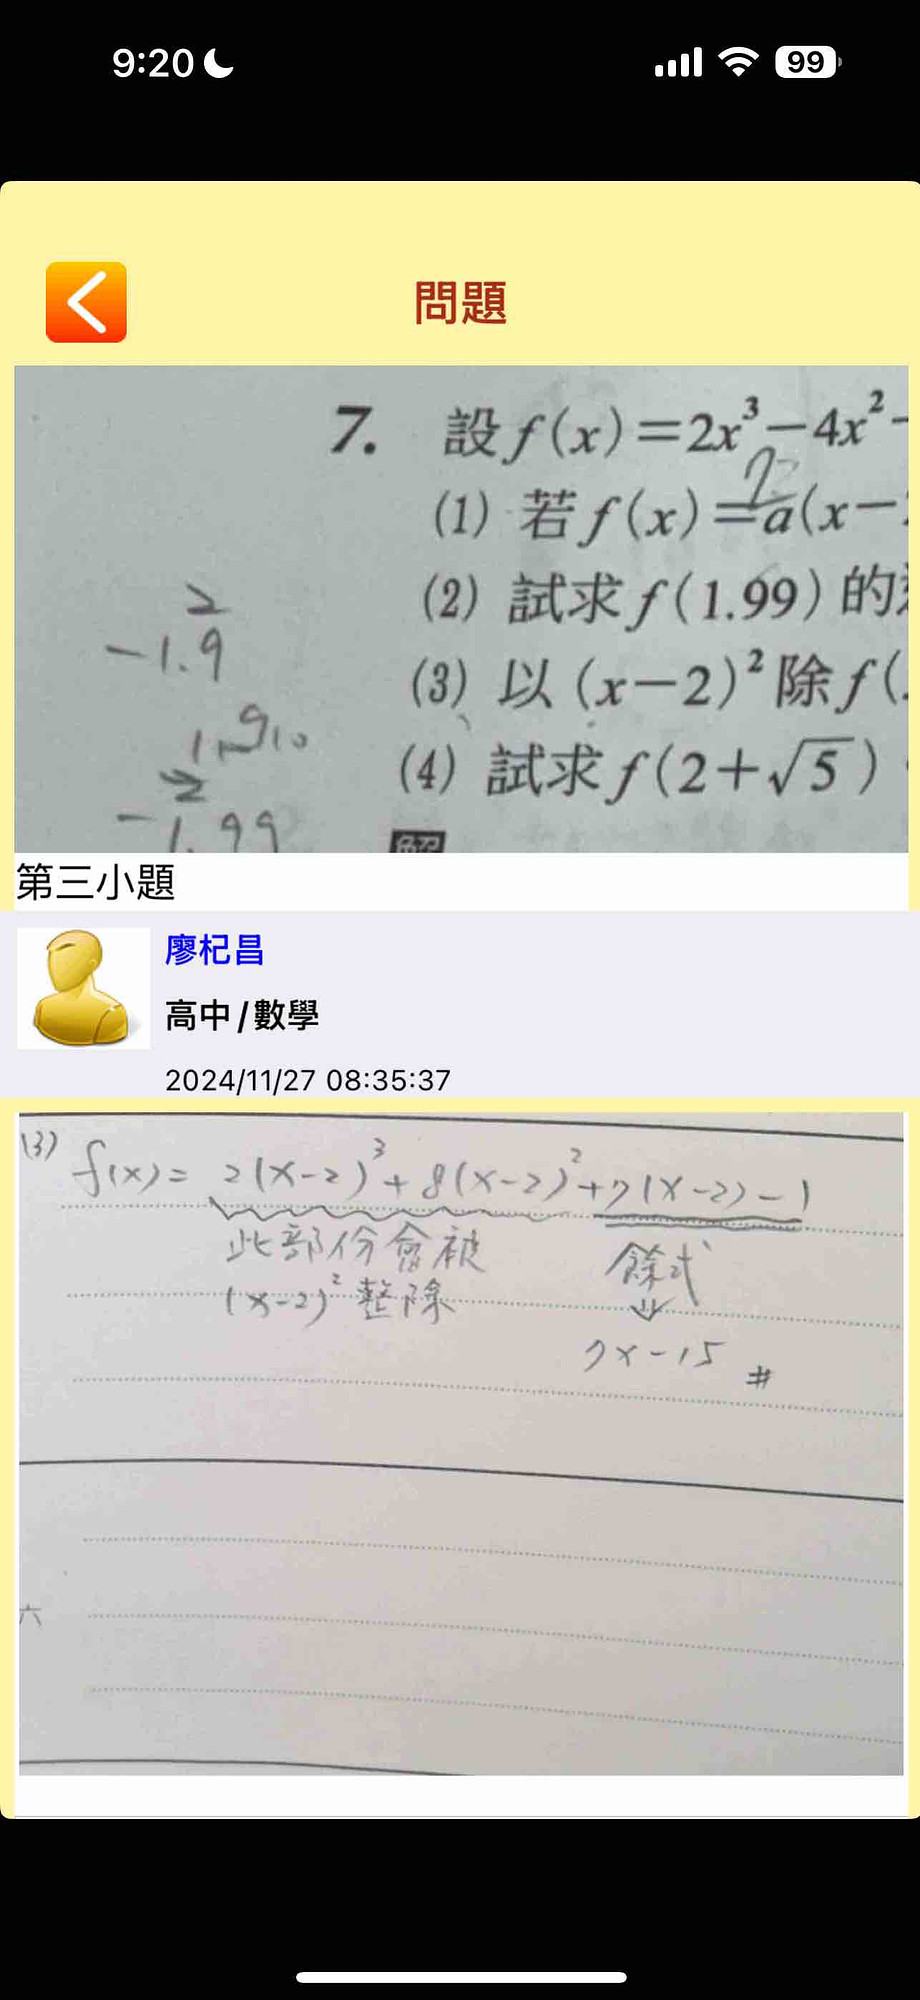 9:20
99
問題
7. 設 f(x)=2x³-4x²-
2
(1) 若 f(x)=a(x-
(2) 試求 f(1.99) 的
(3) 以 (x-2)² 除 f(
(4) 試求 f(2+√5)
解
2
-1.9
2
-1.99
第三小題
廖杞昌
高中/數學
2024/11/27 08:35:37
(3) f(x)= 2(x-2)³+8(x-2)²+7(x-2)-1
此部份會被
(x-2)² 整除
餘式
7x-15 #
六